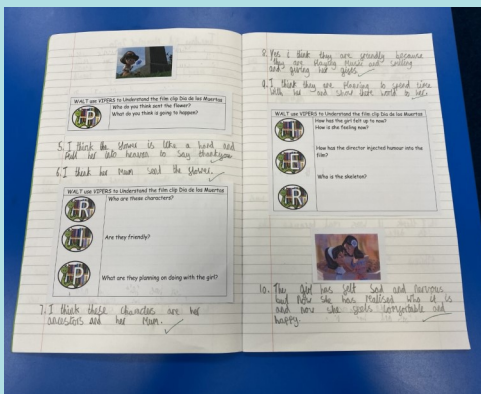 WALT use VIPERS to Understand the film clip Dia de los Muertos
P
Who do you think sent the flower?
What do you think is going to happen?
5. I think the flower is like a hand and
Pull her into heaven to say thankyou
6. I think her Mum send the flower.
WALT use VIPERS to Understand the film clip Dia de los Muertos
R
Who are these characters?
Are they friendly?
P
What are they planning on doing with the girl?
7. I think these characters are her
ancestors and her Mum.
8. Yes i think they are friendly because
they are Playing Music and smiling
and giving her gifts
9. I think they are Planning to spend time
with her and show there world to her.
WALT use VIPERS to Understand the film clip Dia de los Muertos
How has the girl felt up to now?
How is she feeling now?
E
How has the director injected humour into the
film?
R
Who is the skeleton?
10. The Girl has felt sad and nervous
but now she has realised who it is
and now she feels comfortable and
happy.